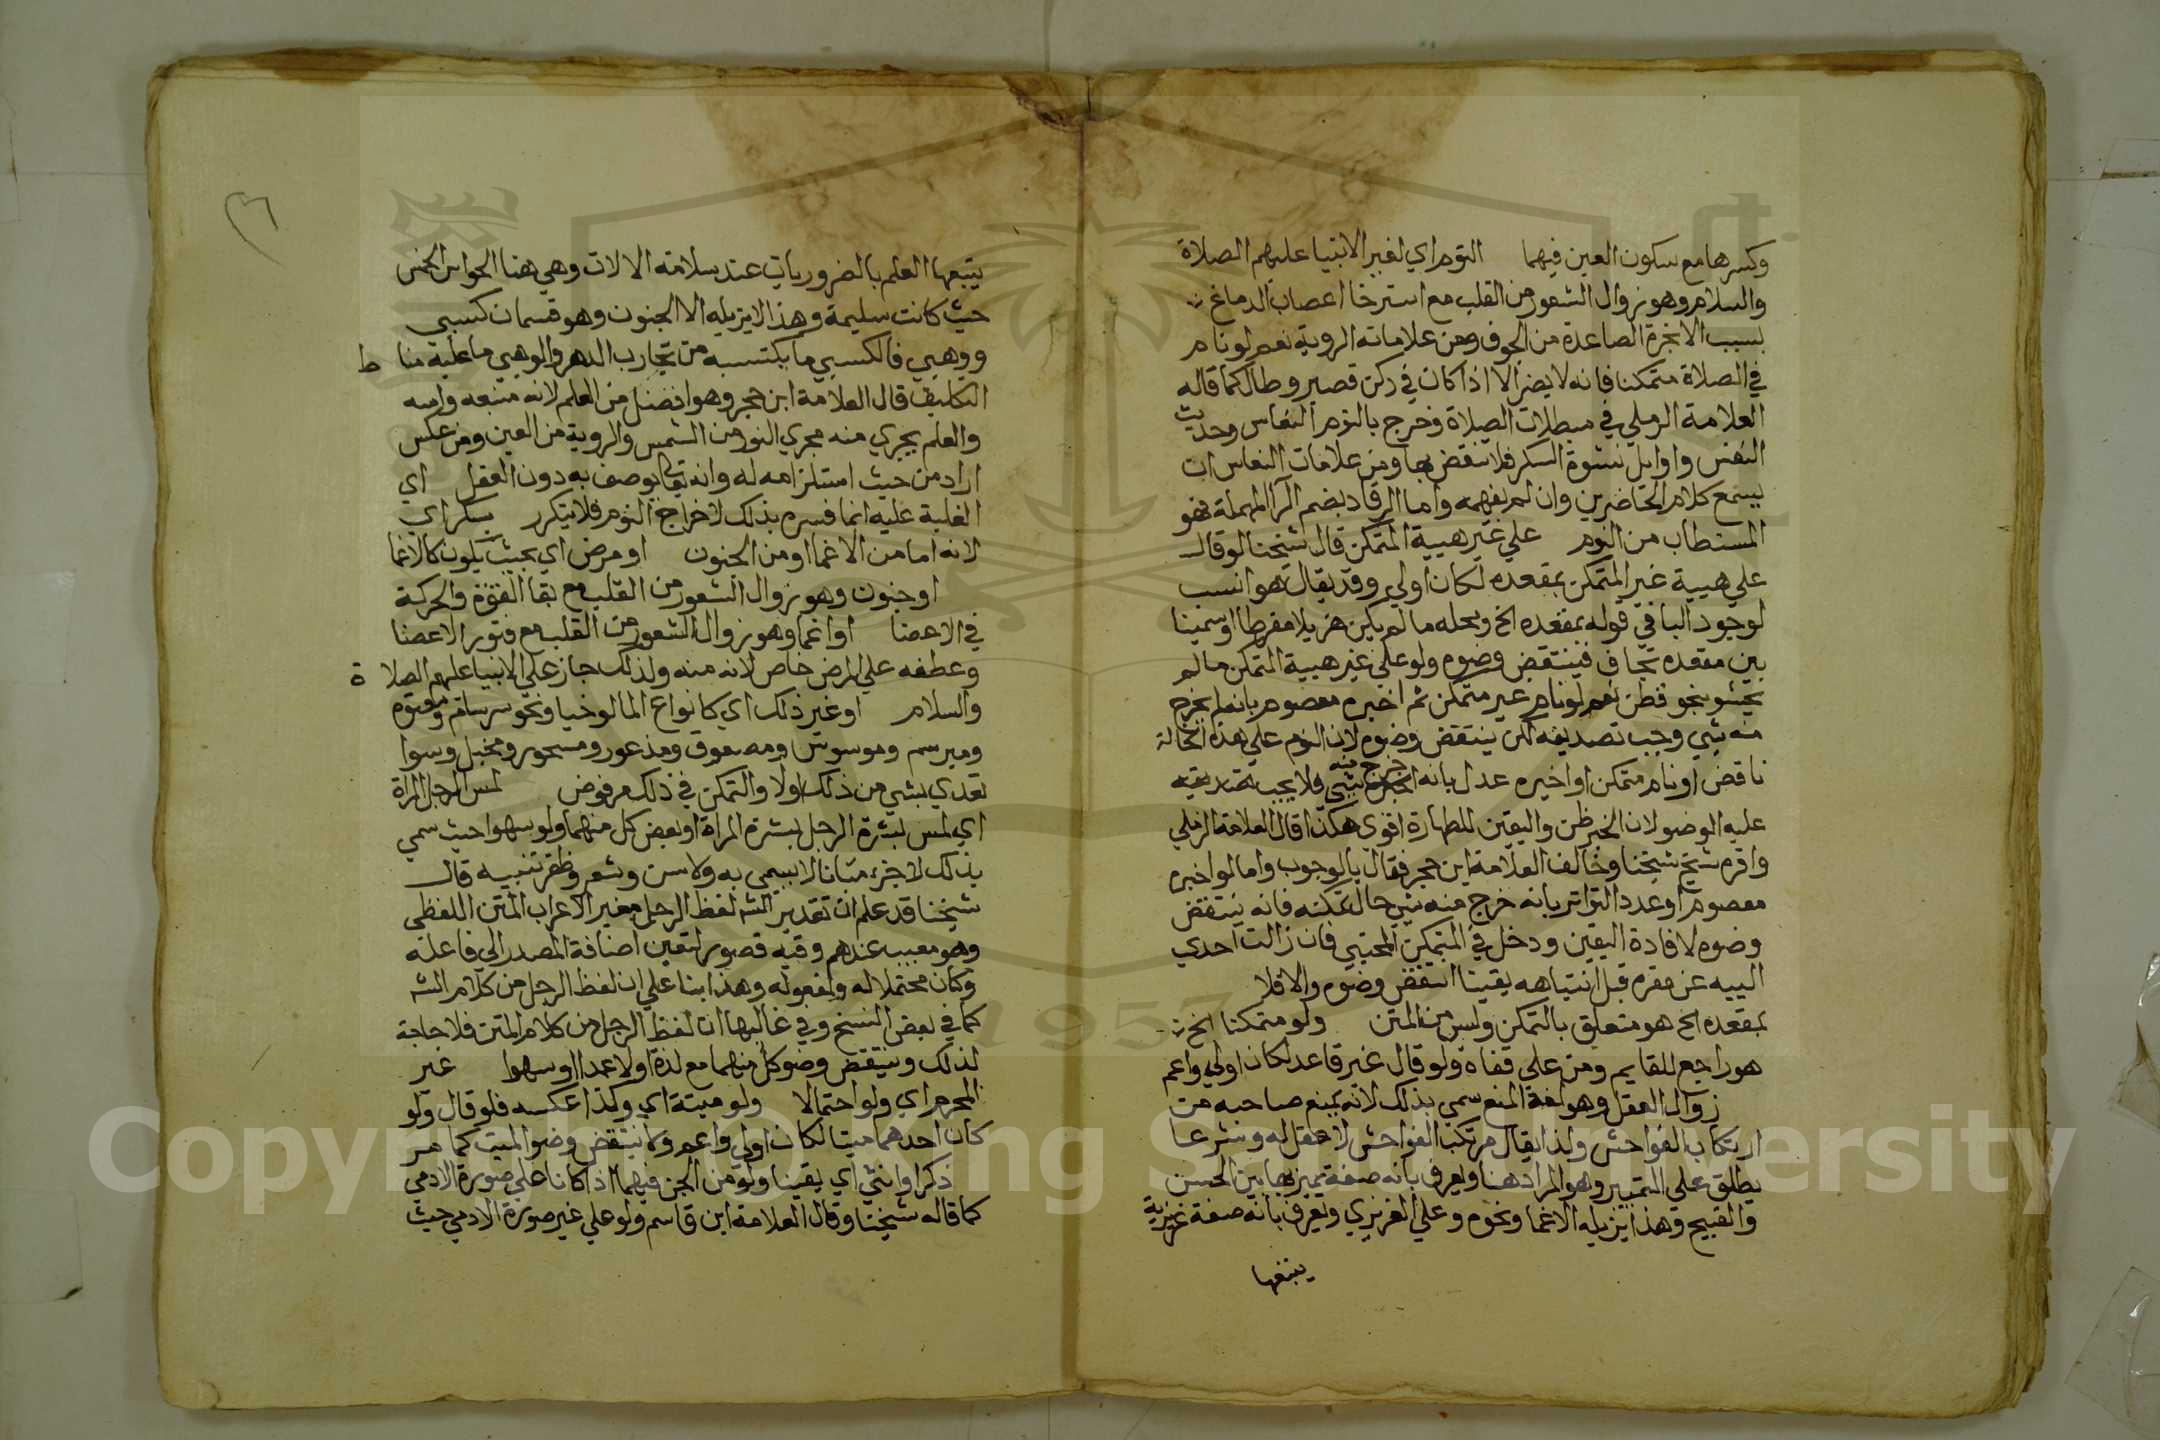 وكسرها مع سكون العين فيهما النوم اي لغير الانبيا عليهم الصلاة
والسلام وهو زوال الشعور من القلب مع استرخا اعصاب الدماغ
بسبب الابخرة الصاعدة من الجوف ومن علاماته الروية نعم لو نام
في الصلاة متمكنا فانه لا يضر الا اذا كان في ركن قصير وطال كما قاله
العلامة الرملي في مبطلات الصلاة وخرج بالنوم النعاس وحديث
النفس واوايل نشوة السكر فلا ينقض بها ومن علامات النعاس ان
يسمع كلام الحاضرين وان لم يفهمه واما الرقاد بضم الرا المهملة فهو
المستطاب من النوم علي غير هيية المتمكن قال شيخنا لو قال
علي هيية غير المتمكن بمقعده لكان اولي وقد يقال هو انسب
لوجود البا في قوله بمقعده الخ ومحله ما لم يكن هزيلا مفرطا او سمينا
بين مقعده تجاف فينتقض وضوه ولو علي غير هيية المتمكن ما لم
يحشو بنحو قطن نعم لو نام غير متمكن ثم اخبره معصوم بانه لم يخرج
منه شي وجب تصديقه لكن ينتقض وضوه لان النوم علي هذه الحالة
ناقض او نام متمكن او اخبره عدل بانه خرج منه شي فلا يجب تصديقه
عليه الوضو لان الخبر ظن واليقين للطهارة اقوي هكذا قال العلامة الرملي
واقره شيخ شيخنا وخالف العلامة ابن حجر فقال بالوجوب واما لو اخبره
معصوم او عدد التواتر بانه خرج منه شي حال تمكنه فانه ينتقض
وضوه لافادة اليقين ودخل في المتمكن المحتبي فان زالت احدي
الييه عن مقره قبل انتباهه يقينا انتقض وضوه والا فلا
بمقعده الخ هو متعلق بالتمكن وليس من المتن ولو متمكنا الخ
هو راجع للقايم ومن علي قفاه ولو قال غير قاعد لكان اولي واعم
زوال العقل وهو لغة المنع سمي بذلك لانه يمنع صاحبه من
ارتكاب الفواحش ولذا يقال مرتكب الفواحش لا عقل له وشرعا
يطلق علي التمييز وهو المراد هنا ويعرف بانه صفة يميز بها بين الحسن
والقبيح وهذا يزيله الاغما ونحوه وعلي الغريزي ويعرف بانه صفة غريزية
يتبعها
يتبعها العلم بالضروريات عند سلامة الالات وهي هنا الحواس الخمس
حيث كانت سليمة وهذا لا يزيله الا الجنون وهو قسمان كسبي
ووهبي فالكسبي ما يكتسبه من تجارب الدهر والوهبي ما عليه مناط
التكليف قال العلامة ابن حجر وهو افضل من العلم لانه منبعه واسه
والعلم يجري منه مجري النور من الشمس والروية من العين ومن عكس
اراد من حيث استلزامه له وانه تعالي يوصف به دون العقل اي
الغلبة عليه انما فسره بذلك لاخراج النوم فلا يتكرر بسكر اي
لانه اما من الاغما او من الجنون او مرض اي بحيث يكون كالاغما
او جنون وهو زوال الشعور من القلب مع بقا القوة والحركة
في الاعضا او اغما وهو زوال الشعور من القلب مع فتور الاعضا
وعطفه علي المرض خاص لانه منه ولذلك جاز علي الانبيا عليهم الصلاة
والسلام او غير ذلك اي كانواع المالوخيا ونحو سرسام ومعتوه
ومبرسم وموسوس ومصعوق ومذعور ومسحور ومخبل وسوا
تعدي بشي من ذلك اولا والتمكن في ذلك مرفوض لمس الرجل المراة
اي لمس بشرة الرجل بشرة المراة او بعض كل منهما ولو سهوا حيث سمي
بذلك لا جزء مبانا لا يسمي به ولا سن وشعر وظفر تنبيه قال
شيخنا قد علم ان تقدير الشه لفظ الرجل مغير لاعراب المتن اللفظي
وهو معيب عندهم وفيه قصور لتعين اضافة المصدر الي فاعله
وكان محتملا له ولمفعوله وهذا بنا علي ان لفظ الرجل من كلام الشه
كما في بعض النسخ وفي غالبها ان لفظ الرجل من كلام المتن فلا حاجة
لذلك وينتقض وضو كل منهما مع لذة اولا عمدا او سهوا غير
المحرم اي ولو احتمالا ولو ميتة اي وكذا عكسه فلو قال ولو
كان احدهما ميتا لكان اولي واعم ولا ينتقض وضو الميت كما مر
ذكرا وانثي اي يقينا ولو من الجن فيهما اذا كانا علي صورة الادمي
كما قاله شيخنا وقال العلامة ابن قاسم ولو علي غير صورة الادمي حيث